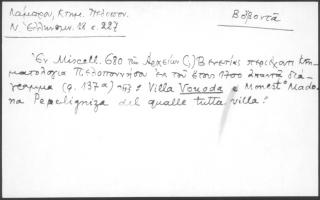 Λάμπρου, Κτημ. Πελοπον.
Βοβοντᾶ
Ν. Ἑλληνομν. 18 σ. 227
Ἐν Miscell. 680 τῶν Ἀρχείων (;) Βενετίας περιέχοντι Κτη-
ματολόγια Πελοποννήσου ἐκ τοῦ ἔτους 1700 ἀπαντᾷ διά-
γραμμα (φ. 137α) : Villa Vouoda e Monest° Mado-
na Pepeligniza del qualle tutta villa :